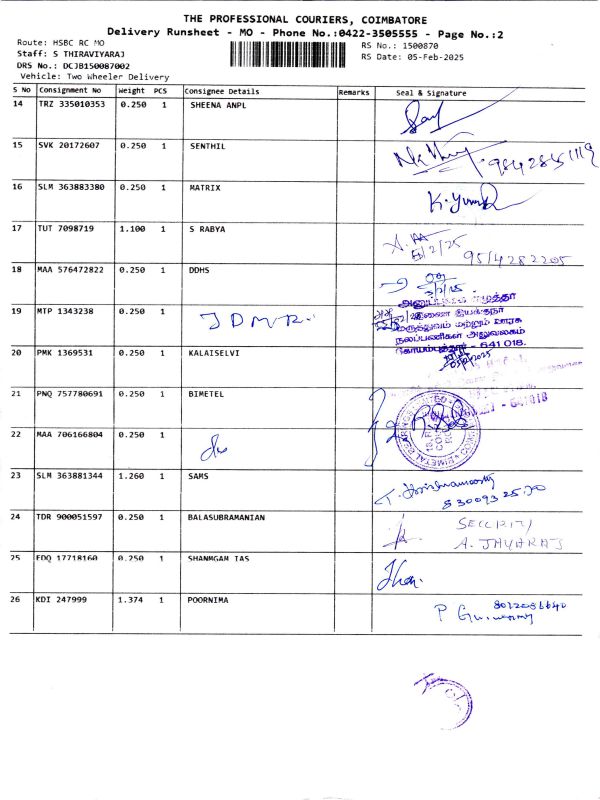 THE PROFESSIONAL COURIERS, COIMBATORE
Delivery Runsheet - MO - Phone No.:0422-3505555 - Page No.:2
Route: HSBC RC MO
RS No.: 1500870
Staff: S THIRAVIYARAJ
RS Date: 05-Feb-2025
DRS No.: DCJB150087002
Vehicle: Two Wheeler Delivery
S No Consignment No Weight PCS Consignee Details Remarks Seal & Signature
14 TRZ 335010353 0.250 1 SHEENA ANPL
15 SVK 20172607 0.250 1 SENTHIL
16 SLM 363883380 0.250 1 MATRIX
K.
17 TUT 7098719 1.100 1 S RABYA
5/2/25 9514282205
18 MAA 576472822 0.250 1 DDHS
19 MTP 1343238 0.250 1 JDMR.
இணை இயக்குநர்
மருத்துவம் மற்றும் ஊரக
நலப்பணிகள் அலுவலகம்
கோயம்புத்தூர் - 641 018.
20 PMK 1369531 0.250 1 KALAISELVI
21 PNQ 757780691 0.250 1 BIMETEL
- 641018
22 MAA 706166804 0.250 1
23 SLM 363881344 1.260 1 SAMS
24 TDR 900051597 0.250 1 BALASUBRAMANIAN
SECURITY
A. JAYARAJ
25 EDQ 17718160 0.250 1 SHANMGAM IAS
26 KDI 247999 1.374 1 POORNIMA
P